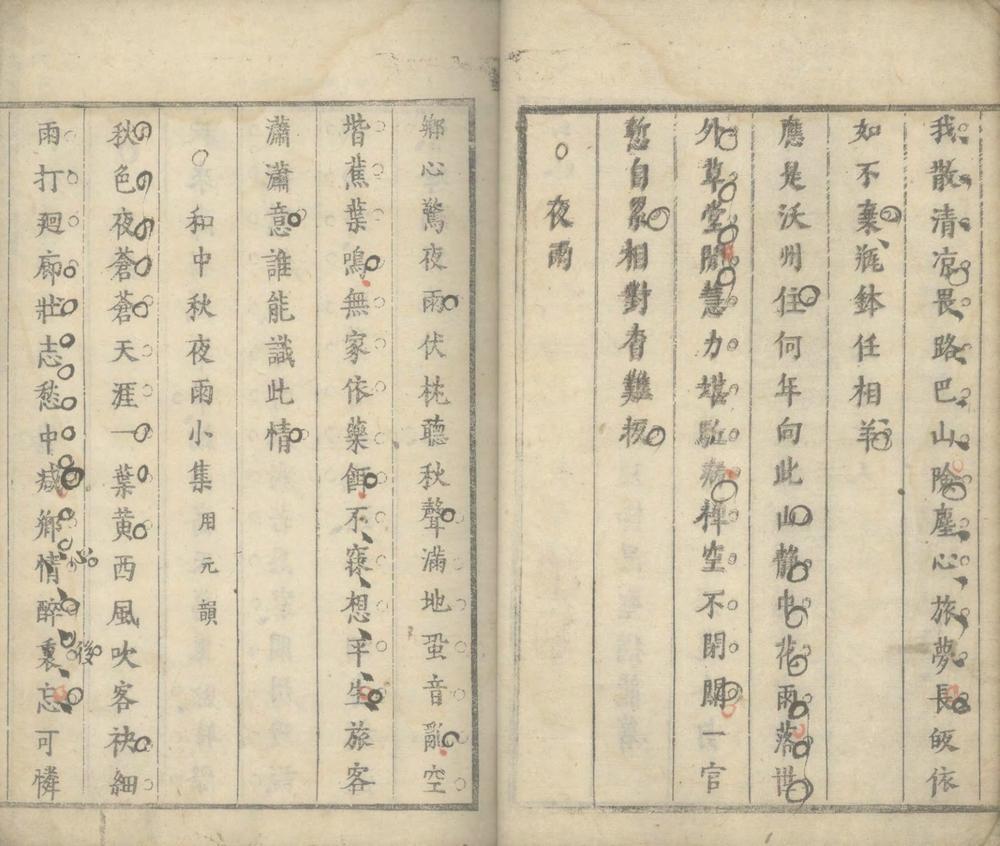 我散清凉畏路巴山險塵心旅夢長皈依
如不棄瓶鉢任相羊
應是沃州住何年向此山靜中花雨落世
外草堂閒慧力堪駐病禪空不閉關一官
慙自累相對杳難扳
○夜雨
鄉心驚夜雨伏枕聽秋聲滿地蛩音亂空
堦蕉葉鳴無家依藥餌不寐想平生旅客
瀟瀟意誰能識此情
○和中秋夜雨小集用元韻
秋色夜蒼蒼天涯一葉黄西風吹客袂細
雨打廻廊壯志愁中減鄉情醉裏忘可憐
心
後